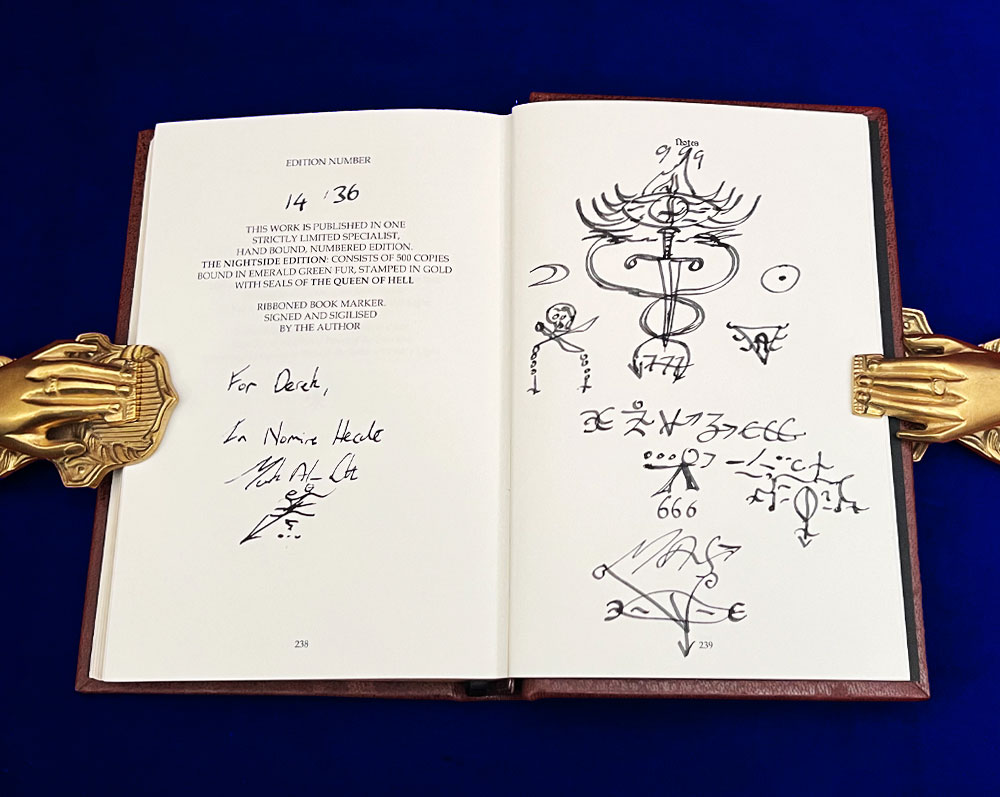 EDITION NUMBER
14 : 36
THIS WORK IS PUBLISHED IN ONE
STRICTLY LIMITED SPECIALIST,
HAND BOUND, NUMBERED EDITION.
THE NIGHTSIDE EDITION: CONSISTS OF 500 COPIES
BOUND IN EMERALD GREEN FUR, STAMPED IN GOLD
WITH SEALS OF THE QUEEN OF HELL
RIBBONED BOOK MARKER.
SIGNED AND SIGILISED
BY THE AUTHOR
For Derek,
In Nomine Hecate
238
Notes
999
777
666
239